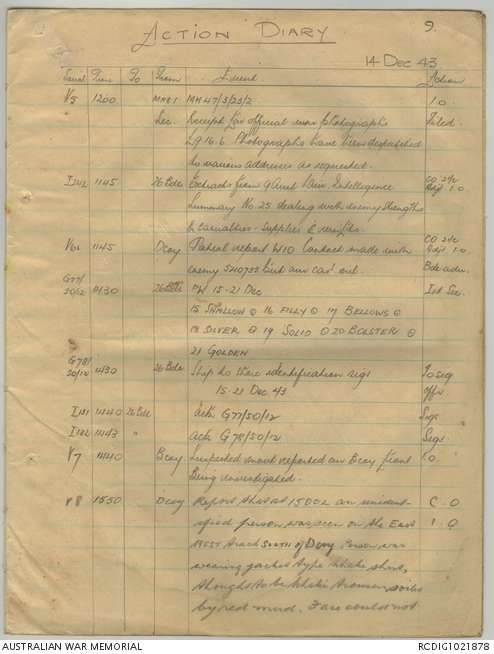 9.
ACTION DIARY
14 Dec 43
Serial Time To From Event Action
V5 1200 MH47/3/23/2 I.O
Sec. Receipt for official war photographs Filed.
Photographs have been despatched
to various addresses as requested.
1145 26 Bde Extracts from 9 Aust Div Intelligence
Summary No 25 dealing with enemy strengths I.O.
& casualties - supplies & reinfts.
1145 D coy Patrol report W10 Contact made with
enemy 540735 Bde adv.
G77/
50/12 26 Bde PW 15-21 Dec Int Sec.
15 SHALLOW ⊙ 16 FILLY ⊙ 17 BELLOWS ⊙
18 SILVER ⊙ 19 SOLID ⊙ 20 BOLSTER ⊙
21 GOLDEN
G78/
50/12 1430 26 Bde Ship to shore identification sigs
15-21 Dec 43
1440 26 Bde Ack. G77/50/12 Sigs
1443 Ack G78/50/12 Sigs.
1440 B coy Suspected reported on B coy front I.O.
Being investigated.
1550 D coy Report that at 1500 an unident- C.O
ified person was seen on the East I.O
West track South of D coy. Person was
wearing jacket type khaki shirt,
thought to be khaki trousers soiled
by red mud. Face could not
AUSTRALIAN WAR MEMORIAL
RCDIG1021878